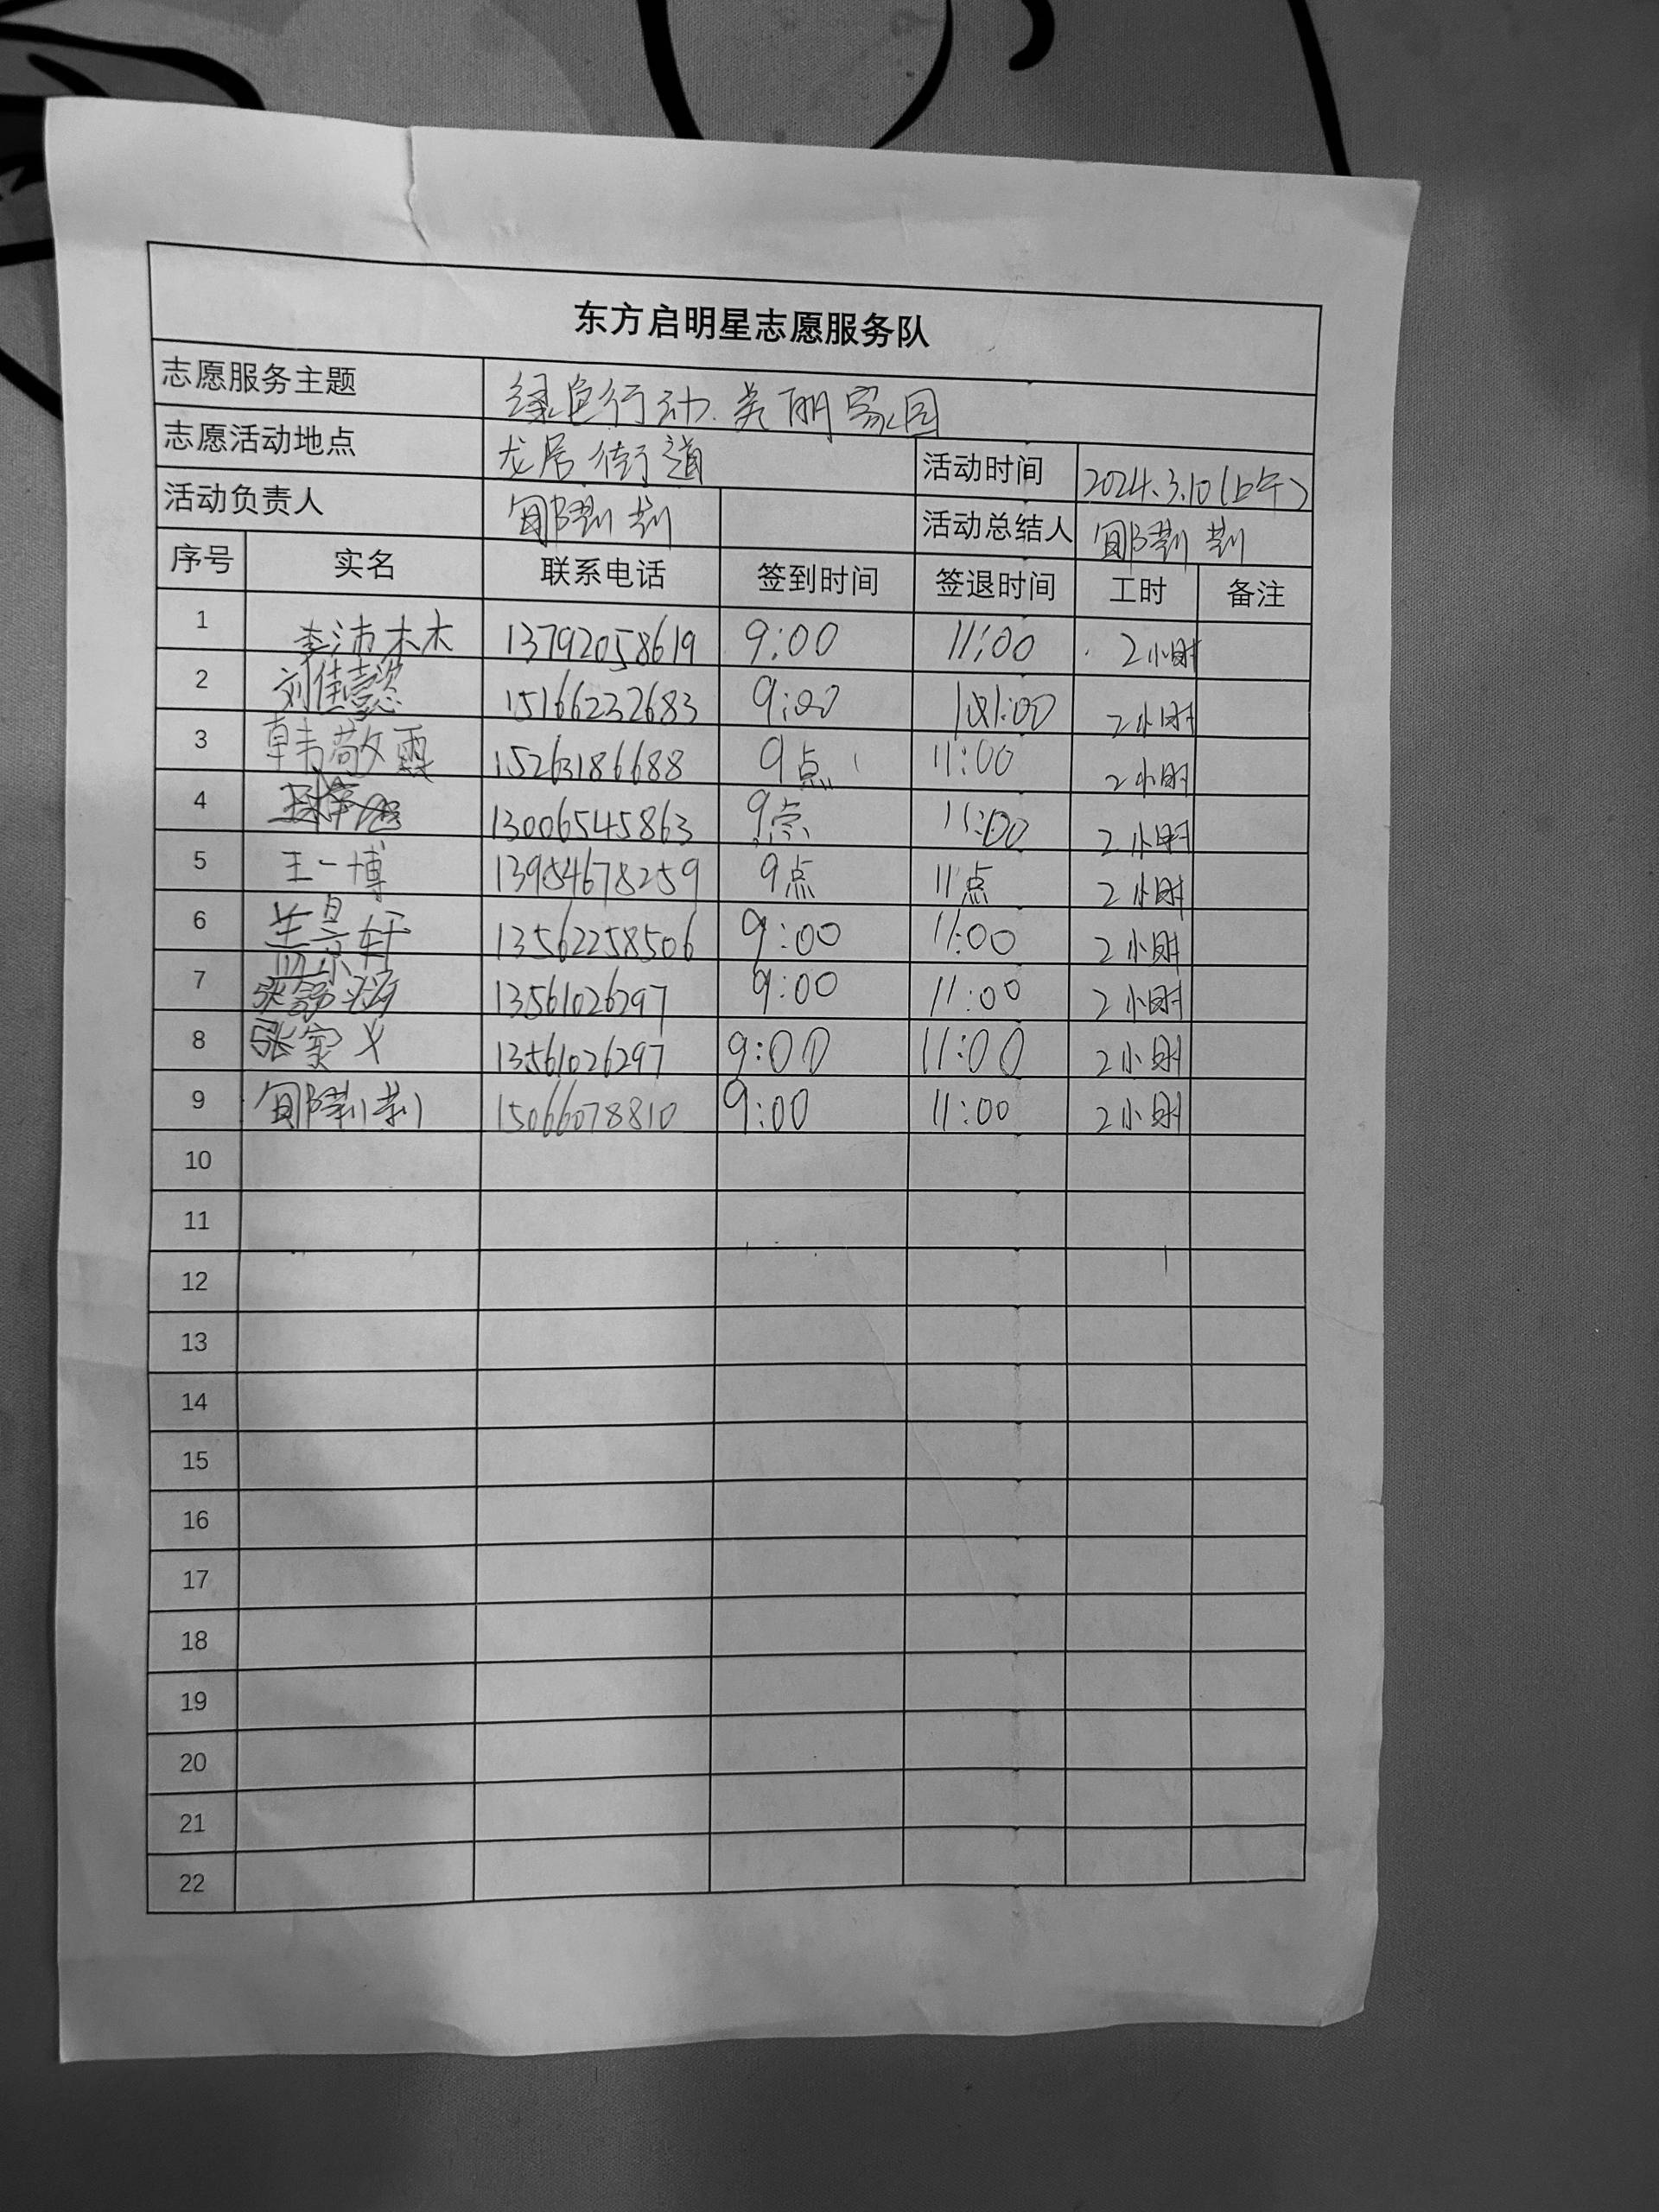 东方启明星志愿服务队
志愿服务主题 绿色行动.美丽家园
志愿活动地点 龙居街道 活动时间 2024.3.10(上午)
活动负责人 活动总结人
序号 实名 联系电话 签到时间 签退时间 工时 备注
1 李沛木木 13792058619 9:00 11:00 2小时
2 刘佳懿 15166232683 9:00 2小时
3 韩敬霖 15263186688 9点 11:00 2小时
4 13006545863 9点 11:00 2小时
5 王一博 13954678259 9点 11点 2小时
6 13562258506 9:00 11:00 2小时
7 13561026297 9:00 11:00 2小时
8 张宴义 13561026297 9:00 11:00 2小时
9 15066078810 9:00 11:00 2小时
10
11
12
13
14
15
16
17
18
19
20
21
22